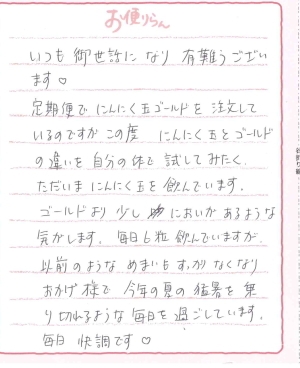 お便りらん
いつも 御世許に なり 有難うござい
ます♡
定期便で にんにく玉ゴールドを 注文して
いるのですが この度 にんにく玉とゴールド
の違いを 自分の体で 試してみたく、
ただいま にんにく玉を 飲んでいます。
ゴールドより 少し においが あるような
気がします。毎日6粒 飲んでいますが、
以前のような めまいも すっかり なくなり
おかげ様で 今年の夏の 猛暑を 乗
り切れるような 毎日を 過ごしています。
毎日 快調です♡